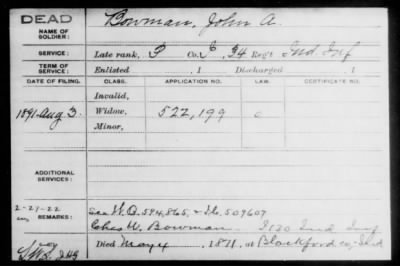 DEAD
Bowman, John A.
NAME OF SOLDIER:
SERVICE: Late rank, P Co. E, 34 Reg't Ind Inf
TERM OF SERVICE: Enlisted , 1 Discharged , 1
DATE OF FILING. CLASS. APPLICATION NO. LAW. CERTIFICATE NO.
Invalid,
1891 Aug 3. Widow, 522,199 c
Minor,
ADDITIONAL SERVICES:
2-21-22 See W.O. 594,865, & I.C. 509607
REMARKS: Chas W. Bowman I 130 Ind Inf
Died May 4, 1871, at Blackford co, Ind